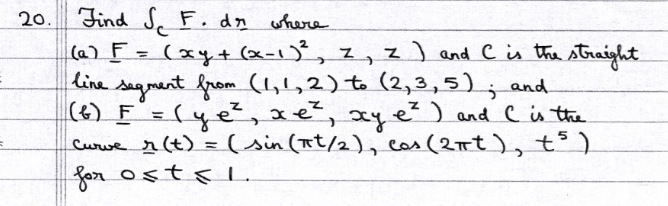 20. Find ∫_C F. dr where
(a) F = (xy + (x-1)², z, z) and C is the straight
line segment from (1,1,2) to (2,3,5); and
(b) F = (y e^z, x e^z, xy e^z) and C is the
curve r(t) = (sin(πt/2), cos(2πt), t⁵)
for 0 ≤ t ≤ 1.